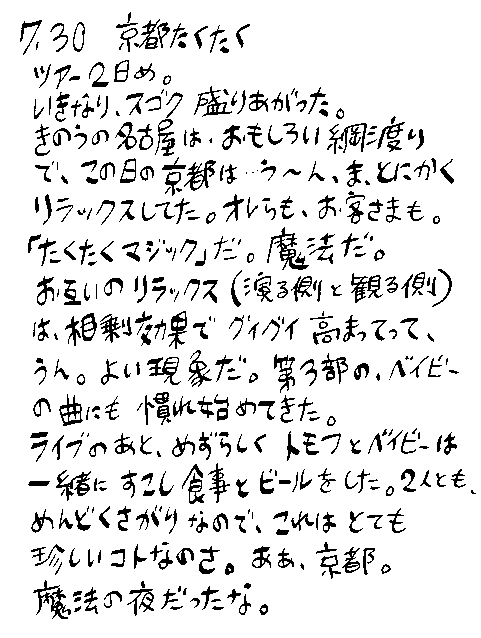 7.30 京都たくたく
ツアー2日め。
いきなり、スゴク 盛りあがった。
きのうの名古屋は、おもしろい綱渡り
で、この日の京都は…う〜ん、ま、とにかく
リラックスしてた。オレらも、お客さまも。
「たくたくマジック」だ。魔法だ。
お互いのリラックス(演る側と観る側)
は、相剰効果で グイグイ 高まってって、
うん。よい現象だ。第3部の、ベイビー
の曲にも 慣れ始めてきた。
ライブのあと、めずらしく トモフとベイビーは
一緒に すこし 食事とビールをした。2人とも、
めんどくさがりなので、これは とても
珍しいコトなのさ。ああ、京都。
魔法の夜だったな。